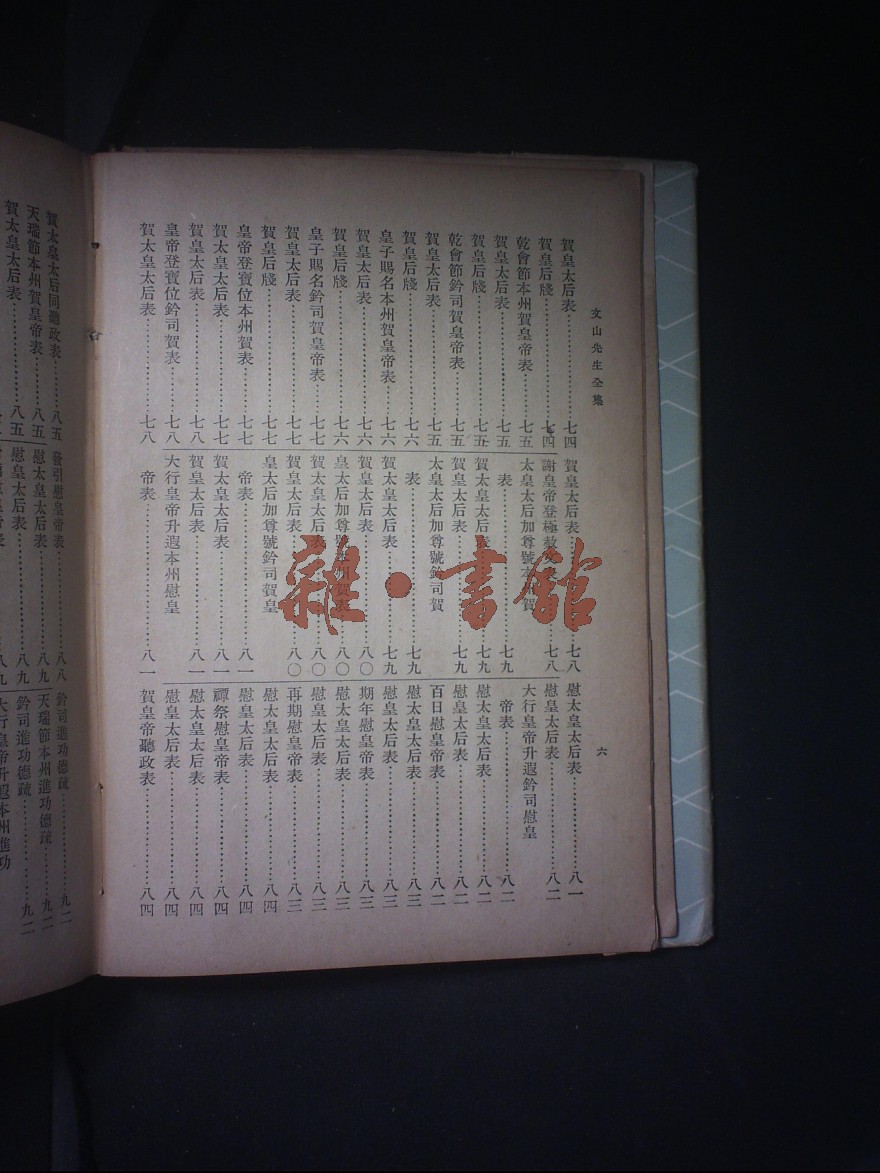 文山先生全集
六
賀皇太后表 七四
賀皇后牋 七四
乾會節本州賀皇帝表 七五
賀皇太后表 七五
賀皇后牋 七五
乾會節鈐司賀皇帝表 七五
賀皇太后表 七五
賀皇后牋 七六
皇子賜名本州賀皇帝表 七六
賀皇太后表 七六
賀皇后牋 七六
皇子賜名鈐司賀皇帝表 七七
賀皇太后表 七七
賀皇后牋 七七
皇帝登寶位本州賀表 七七
賀太皇太后表 七七
賀皇太后表 七八
皇帝登寶位鈐司賀表 七八
賀太皇太后表 七八
賀皇太后表 七八
謝皇帝登極赦 七八
太皇太后加尊號本州賀
表 七九
賀太皇太后表 七九
賀皇太后表 七九
太皇太后加尊號鈐司賀
表 七九
賀太皇太后表 七九
賀皇太后表 八〇
皇太后加尊號本州賀表 八〇
賀太皇太后表 八〇
賀皇太后表 八〇
皇太后加尊號鈐司賀皇
帝表 八一
賀太皇太后表 八一
賀皇太后表 八一
大行皇帝升遐本州慰皇
帝表 八一
慰太皇太后表 八一
慰皇太后表 八二
大行皇帝升遐鈐司慰皇
帝表 八二
慰太皇太后表 八二
慰皇太后表 八二
百日慰皇帝表 八二
慰太皇太后表 八三
慰皇太后表 八三
期年慰皇帝表 八三
慰太皇太后表 八三
慰皇太后表 八三
再期慰皇帝表 八三
慰太皇太后表 八四
慰皇太后表 八四
禫祭慰皇帝表 八四
慰太皇太后表 八四
慰皇太后表 八四
賀皇帝聽政表 八四
賀太皇太后同聽政表 八五
天瑞節本州賀皇帝表 八五
賀太皇太后表 八五
發引慰皇帝表 八八
慰太皇太后表 八九
慰皇太后表 八九
鈐司進功德疏 九二
天瑞節本州進功德疏 九二
鈐司進功德疏 九二
大行皇帝升遐本州進功
雜·書館